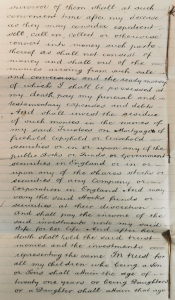 survivor of them shall at such
convenient time after my decease
as they may consider expedient
sell call in collect or otherwise
convert into money such parts
thereof as shall not consist of
money and shall out of the
monies arising from such sale
and conversion and the ready money
of which I shall be possessed at
my death pay my funeral and
testamentary expenses and debts
And shall invest the residue
of such monies in the names of
my said trustees on mortgages of
freehold copyhold or leasehold
securities or in or upon any of the
public stocks or funds or Government
securities in England or in or
upon any of the shares stocks or
securities of any Company or
Corporation in England And may
vary the said stocks funds or
securities at their discretion
and shall pay the income of the
said investments unto my said
Wife for her life And after her
death shall hold the said trust
monies and the investments
representing the same In trust for
all my children who being a Son
or Sons shall attain the age of
twenty one years or being Daughters
or a Daughter shall attain that age